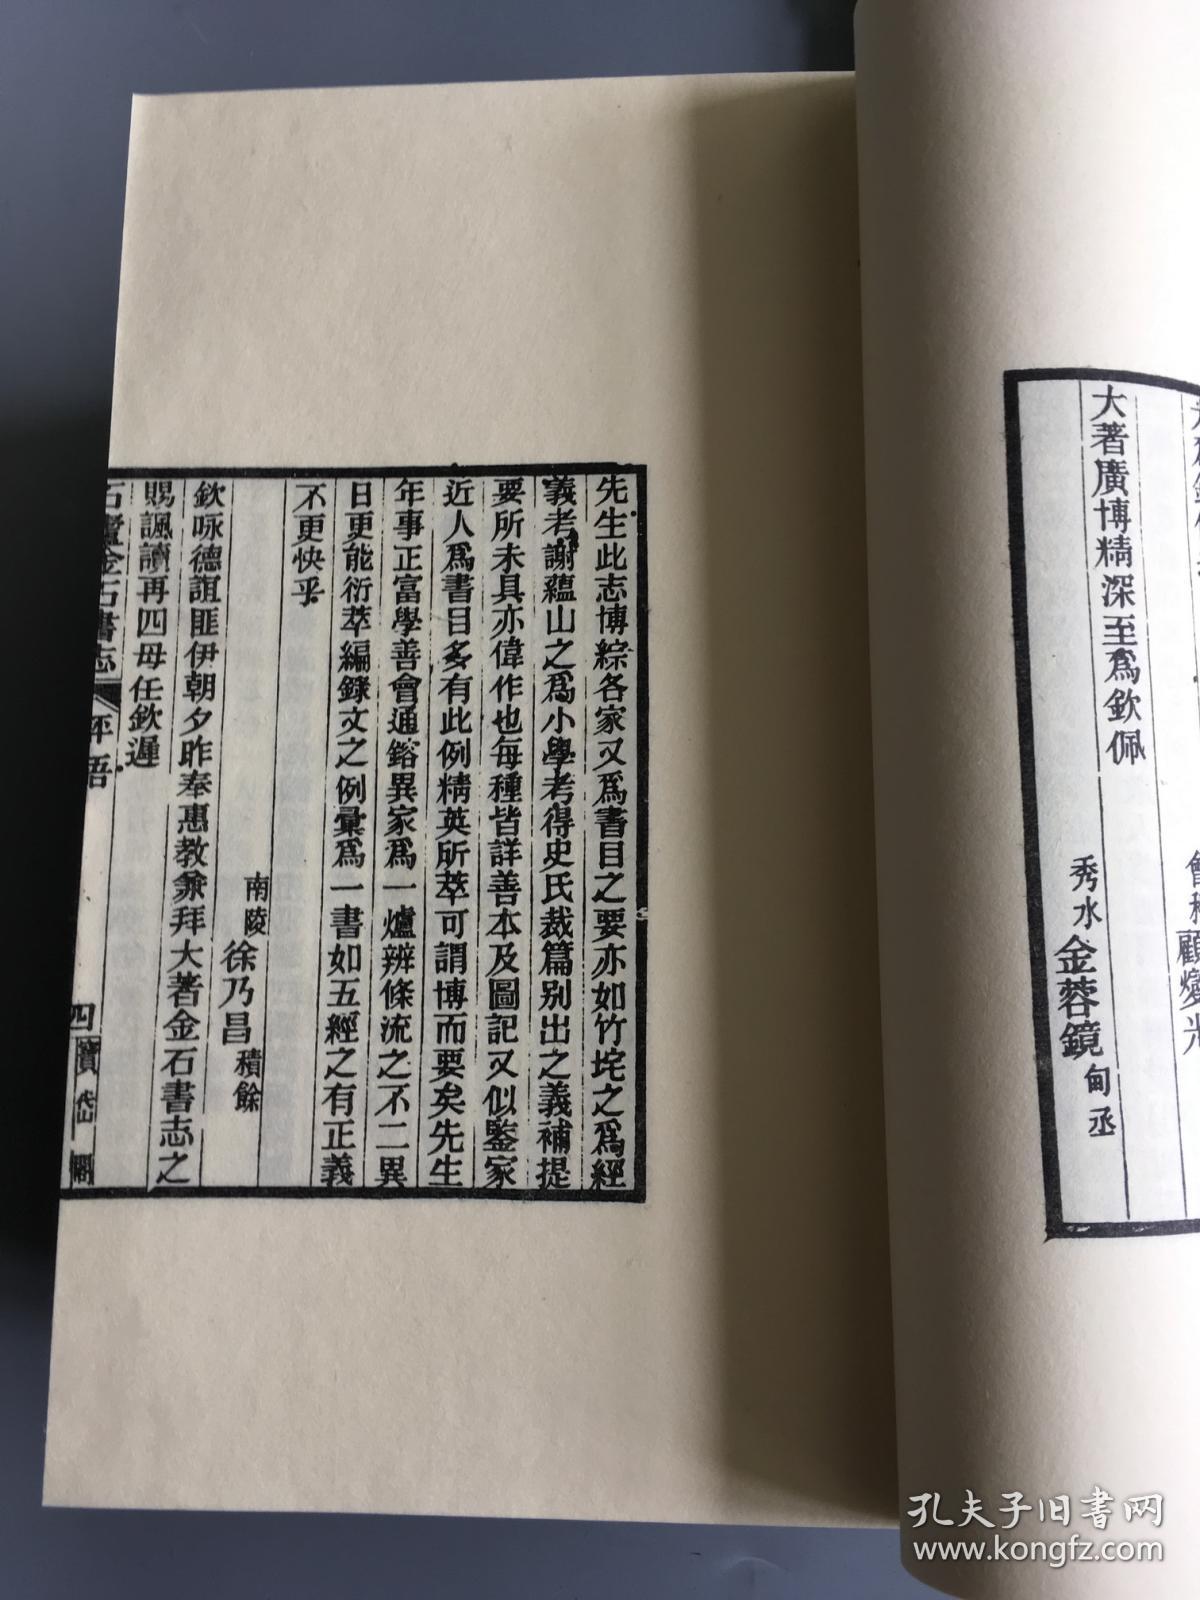 大著廣博精深至爲欽佩
秀水金蓉鏡甸丞
先生此志博綜各家又爲書目之要亦如竹垞之爲經
義考謝蘊山之爲小學考得史氏裁篇别出之義補提
要所未具亦偉作也每種皆詳善本及圖記又似鑒家
近人爲書目多有此例精英所萃可謂博而要矣先生
年事正富學善會通鎔異家爲一爐辨條流之不二異
日更能衍萃編錄文之例彙爲一書如五經之有正義
不更快乎
南陵徐乃昌積餘
欽咏德誼匪伊朝夕昨奉惠教兼拜大著金石書志之
賜諷讀再四毋任欽遲
石廬金石書志
評語
四
孔夫子旧书网
www.kongfz.com